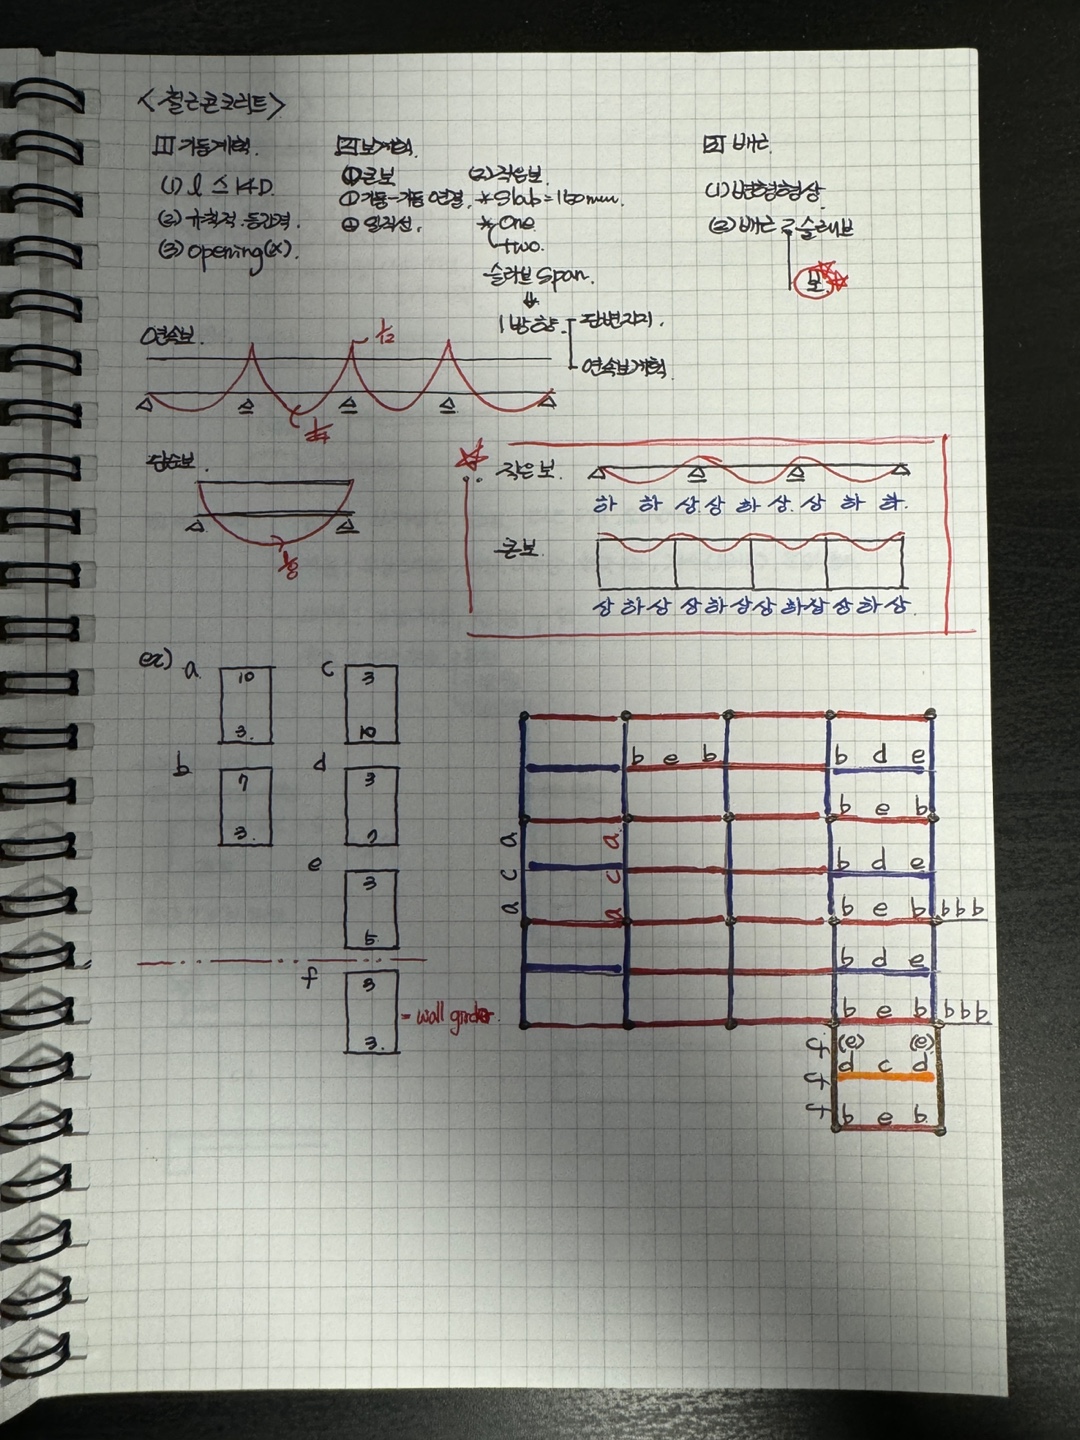 <철근콘크리트>
1 기둥계획.
(1) l ≤ 14D.
(2) 규칙적·등간격.
(3) opening(x).
2 보계획.
① 큰보
① 기둥-기둥 연결.
② 일직선.
(2) 작은보.
* Slab = 150mm.
* One
two.
슬라브 Span.
⇓
1방향
단변지지.
연속보계획.
3 배근.
(1) 변형형상.
(2) 배근 슬래브
보
연속보.
1/12
단순보.
1/8
작은보
하 하 상 상 하 상 상 하 하.
큰보.
상 하 상 상 하 상 상 하 상 상 하 상.
ex)
a
10
3.
c
3
10
b
7
3.
d
3
7
e
3
5
f
3
3.
= wall girder.
b e b
b d e
b e b
a a
b d e
c c
a a
b e b b b b
b d e
b e b b b b
f (e) (e)
f d c d
f b e b.